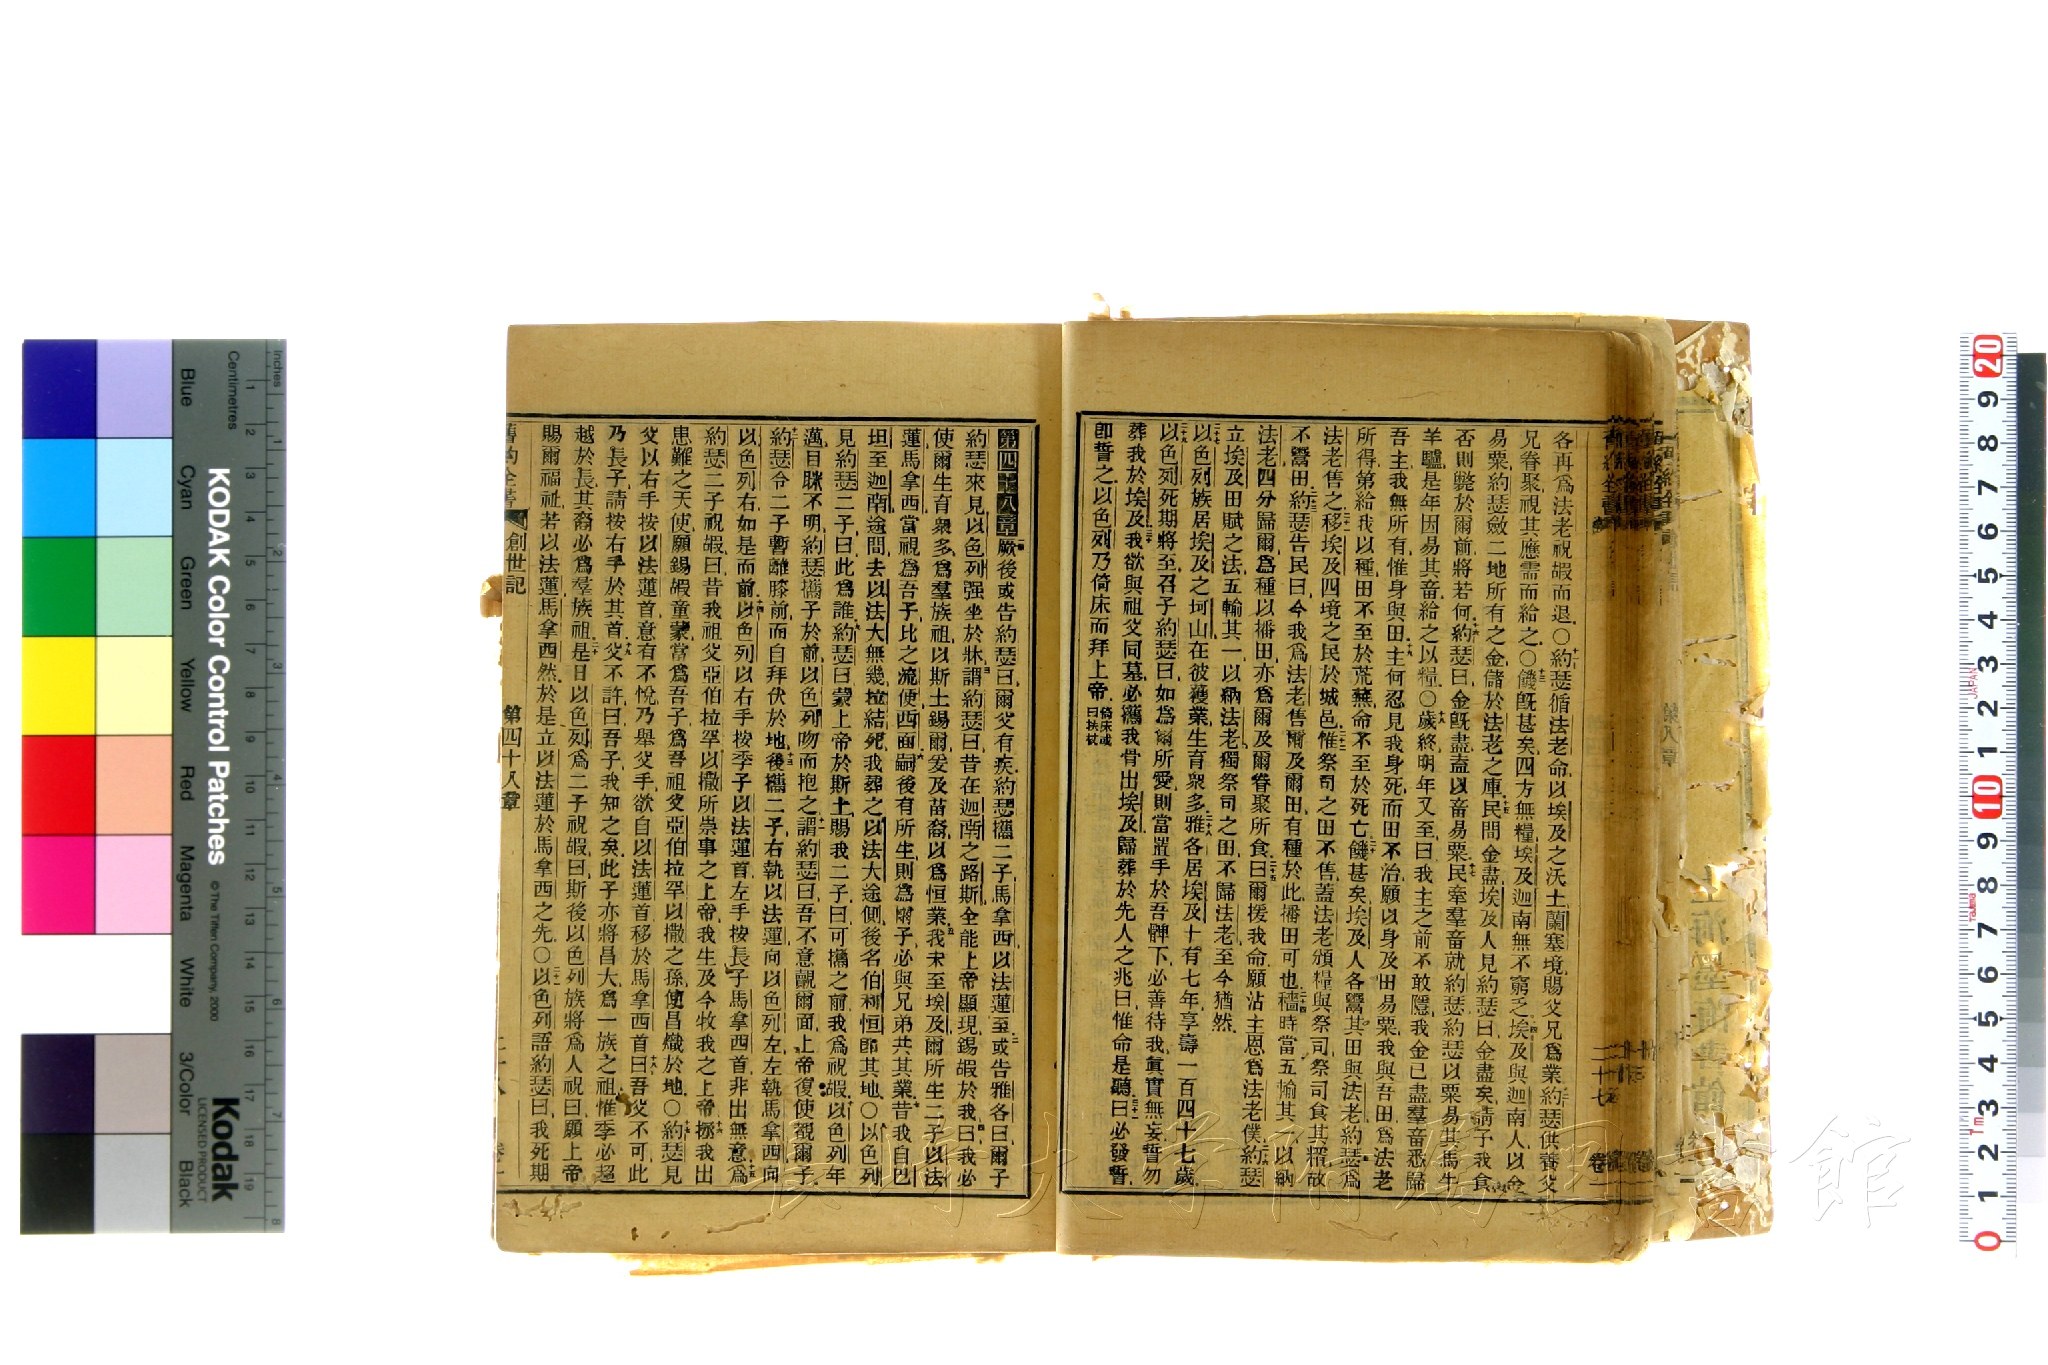 各再爲法老祝嘏而退〇約瑟循法老命以埃及之沃土蘭塞境賜父兄爲業約瑟供養父
兄眷聚視其應需而給之〇饑旣甚矣四方無糧埃及迦南無不窮乏埃及與迦南人以金
易粟約瑟斂二地所有之金儲於法老之庫民間金盡埃及人見約瑟曰金盡矣請予我食
否則斃於爾前將若何約瑟曰金旣盡盍以畜易粟民牽羣畜就約瑟約瑟以粟易其馬牛
羊驢是年因易其畜給之以糧〇歲終明年又至曰我主之前不敢隱我金已盡羣畜悉歸
吾主我無所有惟身與田主何忍見我身死而田不治願以身及田易粟我與吾田爲法老
所得第給我以種田不至於荒蕪命不至於死亡饑甚矣埃及人各鬻其田與法老約瑟爲
法老售之移埃及四境之民於城邑惟祭司之田不售蓋法老頒糧與祭司祭司食其糈故
不鬻田約瑟告民曰今我爲法老售爾及爾田有種於此播田可也穡時當五輸其一以納
法老四分歸爾爲種以播田亦爲爾及爾眷聚所食曰爾援我命願沾主恩爲法老僕約瑟
立埃及田賦之法五輸其一以納法老獨祭司之田不歸法老至今猶然
以色列族居埃及之坷山在彼獲業生育衆多雅各居埃及十有七年享壽一百四十七歲
以色列死期將至召子約瑟曰如爲爾所愛則當置手於吾髀下必善待我眞實無妄誓勿
葬我於埃及我欲與祖父同墓必攜我骨出埃及歸葬於先人之兆曰惟命是聽曰必發誓
卽誓之以色列乃倚床而拜上帝 倚床或曰扶杖
二十七
卷一
第四十八章 厥後或告約瑟曰爾父有疾約瑟攜二子馬拿西以法蓮至或告雅各曰爾子
約瑟來見以色列强坐於牀謂約瑟曰昔在迦南之路斯全能上帝顯現錫嘏於我曰我必
使爾生育衆多爲羣族祖以斯土錫爾爰及苗裔以爲恒業我未至埃及爾所生二子以法
蓮馬拿西當視爲吾子比之流便西面嗣後有所生則爲爾子必與兄弟共其業昔我自巴
坦至迦南途間去以法大無幾拉結死我葬之以法大途側後名伯利恒卽其地〇以色列
見約瑟二子曰此爲誰約瑟曰蒙上帝於斯土賜我二子曰可攜之前我爲祝嘏以色列年
邁目眯不明約瑟攜子於前以色列吻而抱之謂約瑟曰吾不意觀爾面上帝復使視爾子
約瑟令二子暫離膝前而自拜伏於地後攜二子右執以法蓮向以色列左左執馬拿西向
以色列右如是而前以色列以右手按季子以法蓮首左手按長子馬拿西首非出無意爲
約瑟二子祝嘏曰昔我祖父亞伯拉罕以撒所崇事之上帝我生及今牧我之上帝拯我出
患難之天使願錫嘏童蒙當爲吾子爲吾祖父亞伯拉罕以撒之孫使昌熾於地〇約瑟見
父以右手按以法蓮首意有不悅乃舉父手欲自以法蓮首移於馬拿西首曰吾父不可此
乃長子請按右手於其首父不許曰吾子我知之矣此子亦將昌大爲一族之祖惟季必超
越於長其裔必爲羣族祖是日以色列爲二子祝嘏曰斯後以色列族將爲人祝曰願上帝
賜爾福祉若以法蓮馬拿西然於是立以法蓮於馬拿西之先〇以色列語約瑟曰我死期
舊約全書 創世記 第四十八章
KODAK Color Control Patches
© The Tiffen Company, 2000
Kodak
LICENSED PRODUCT
Inches
Centimetres
Blue Cyan Green Yellow Red Magenta White 3/Color Black
長崎大学附属図書館